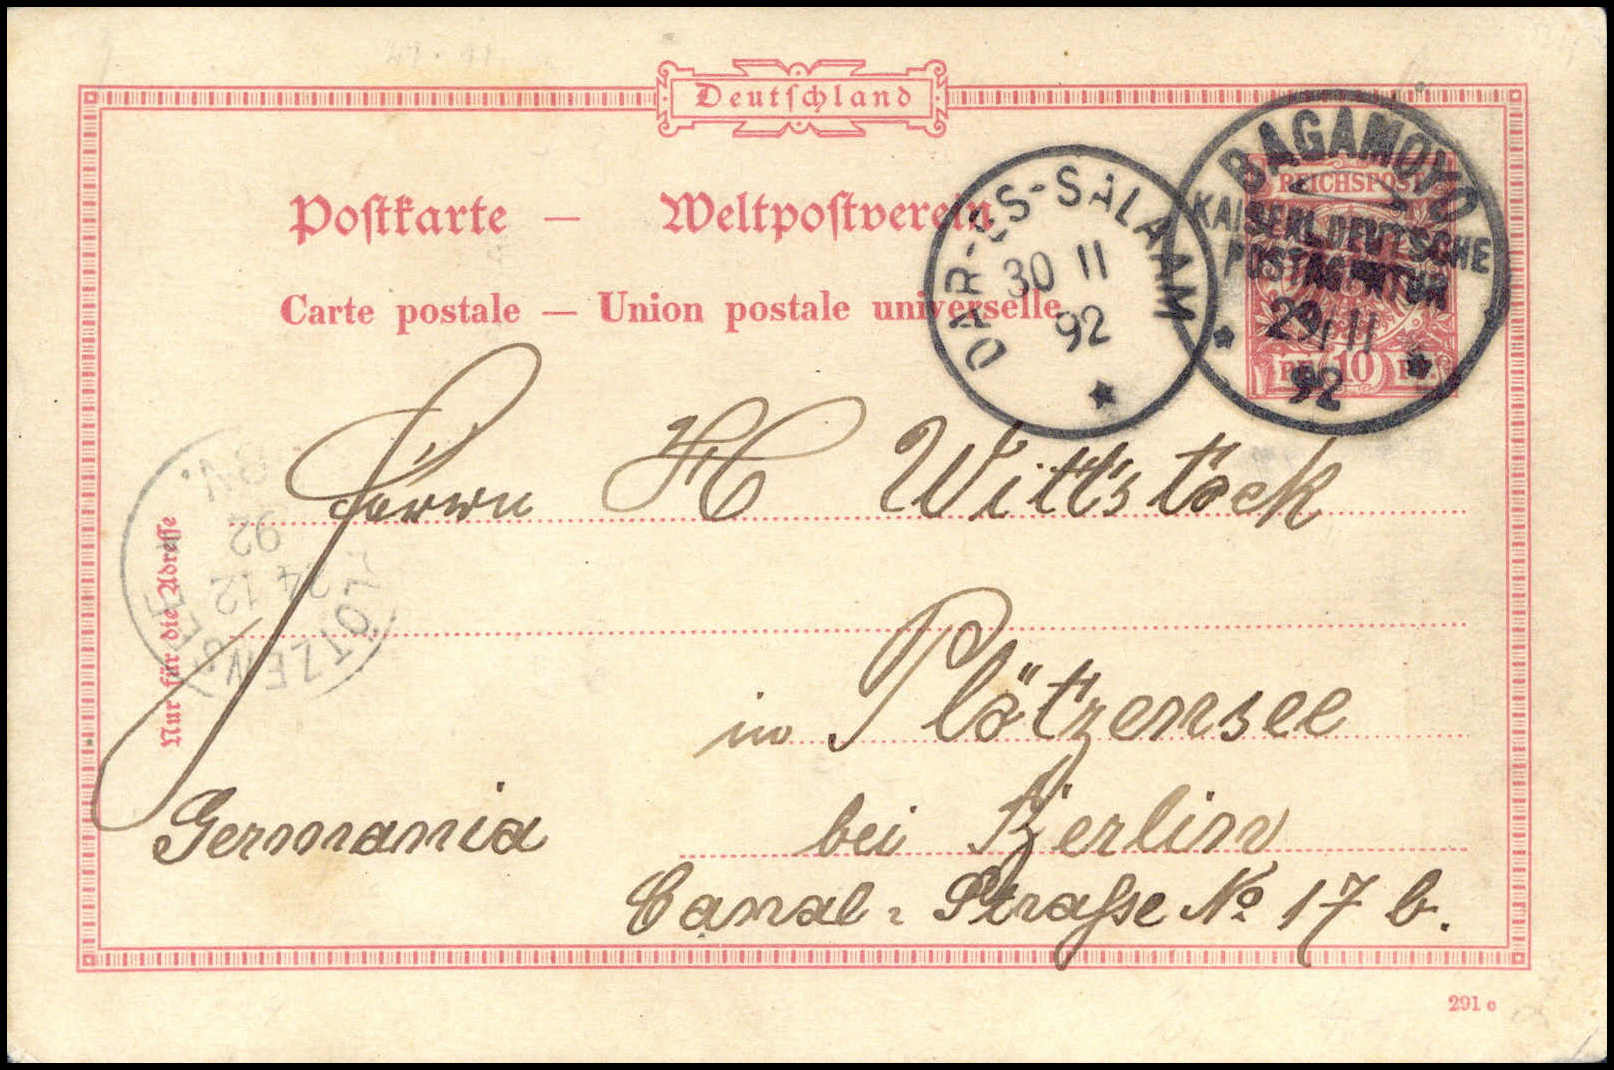 Deutschland
Postkarte — Weltpostverein
Carte postale — Union postale universelle
DAR-ES-SALAAM
30 11
92
BAGAMOYO
KAISERL. DEUTSCHE
POSTAGENTUR
29 11
92
REICHSPOST
10
Herrn H Wittstock
in Plötzensee
bei Berlin
Germania
Canal-Straße No 17 b.
Nur für die Adresse
PLÖTZENSEE
24 12
92
8-9V.
291 c